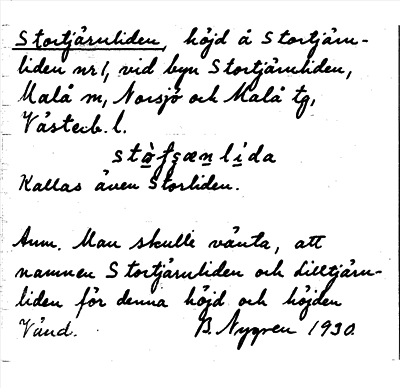 Stortjärnliden, höjd å Stortjärn-
liden nr 1, vid byn Stortjärnliden,
Malå m, Norsjö och Malå tg,
Västerb. l.
Kallas även Storliden.
Anm. Man skulle vänta, att
namnen Stortjärnliden och Lilltjärn-
liden för denna höjd och höjden
Vänd. B. Nygren 1930.